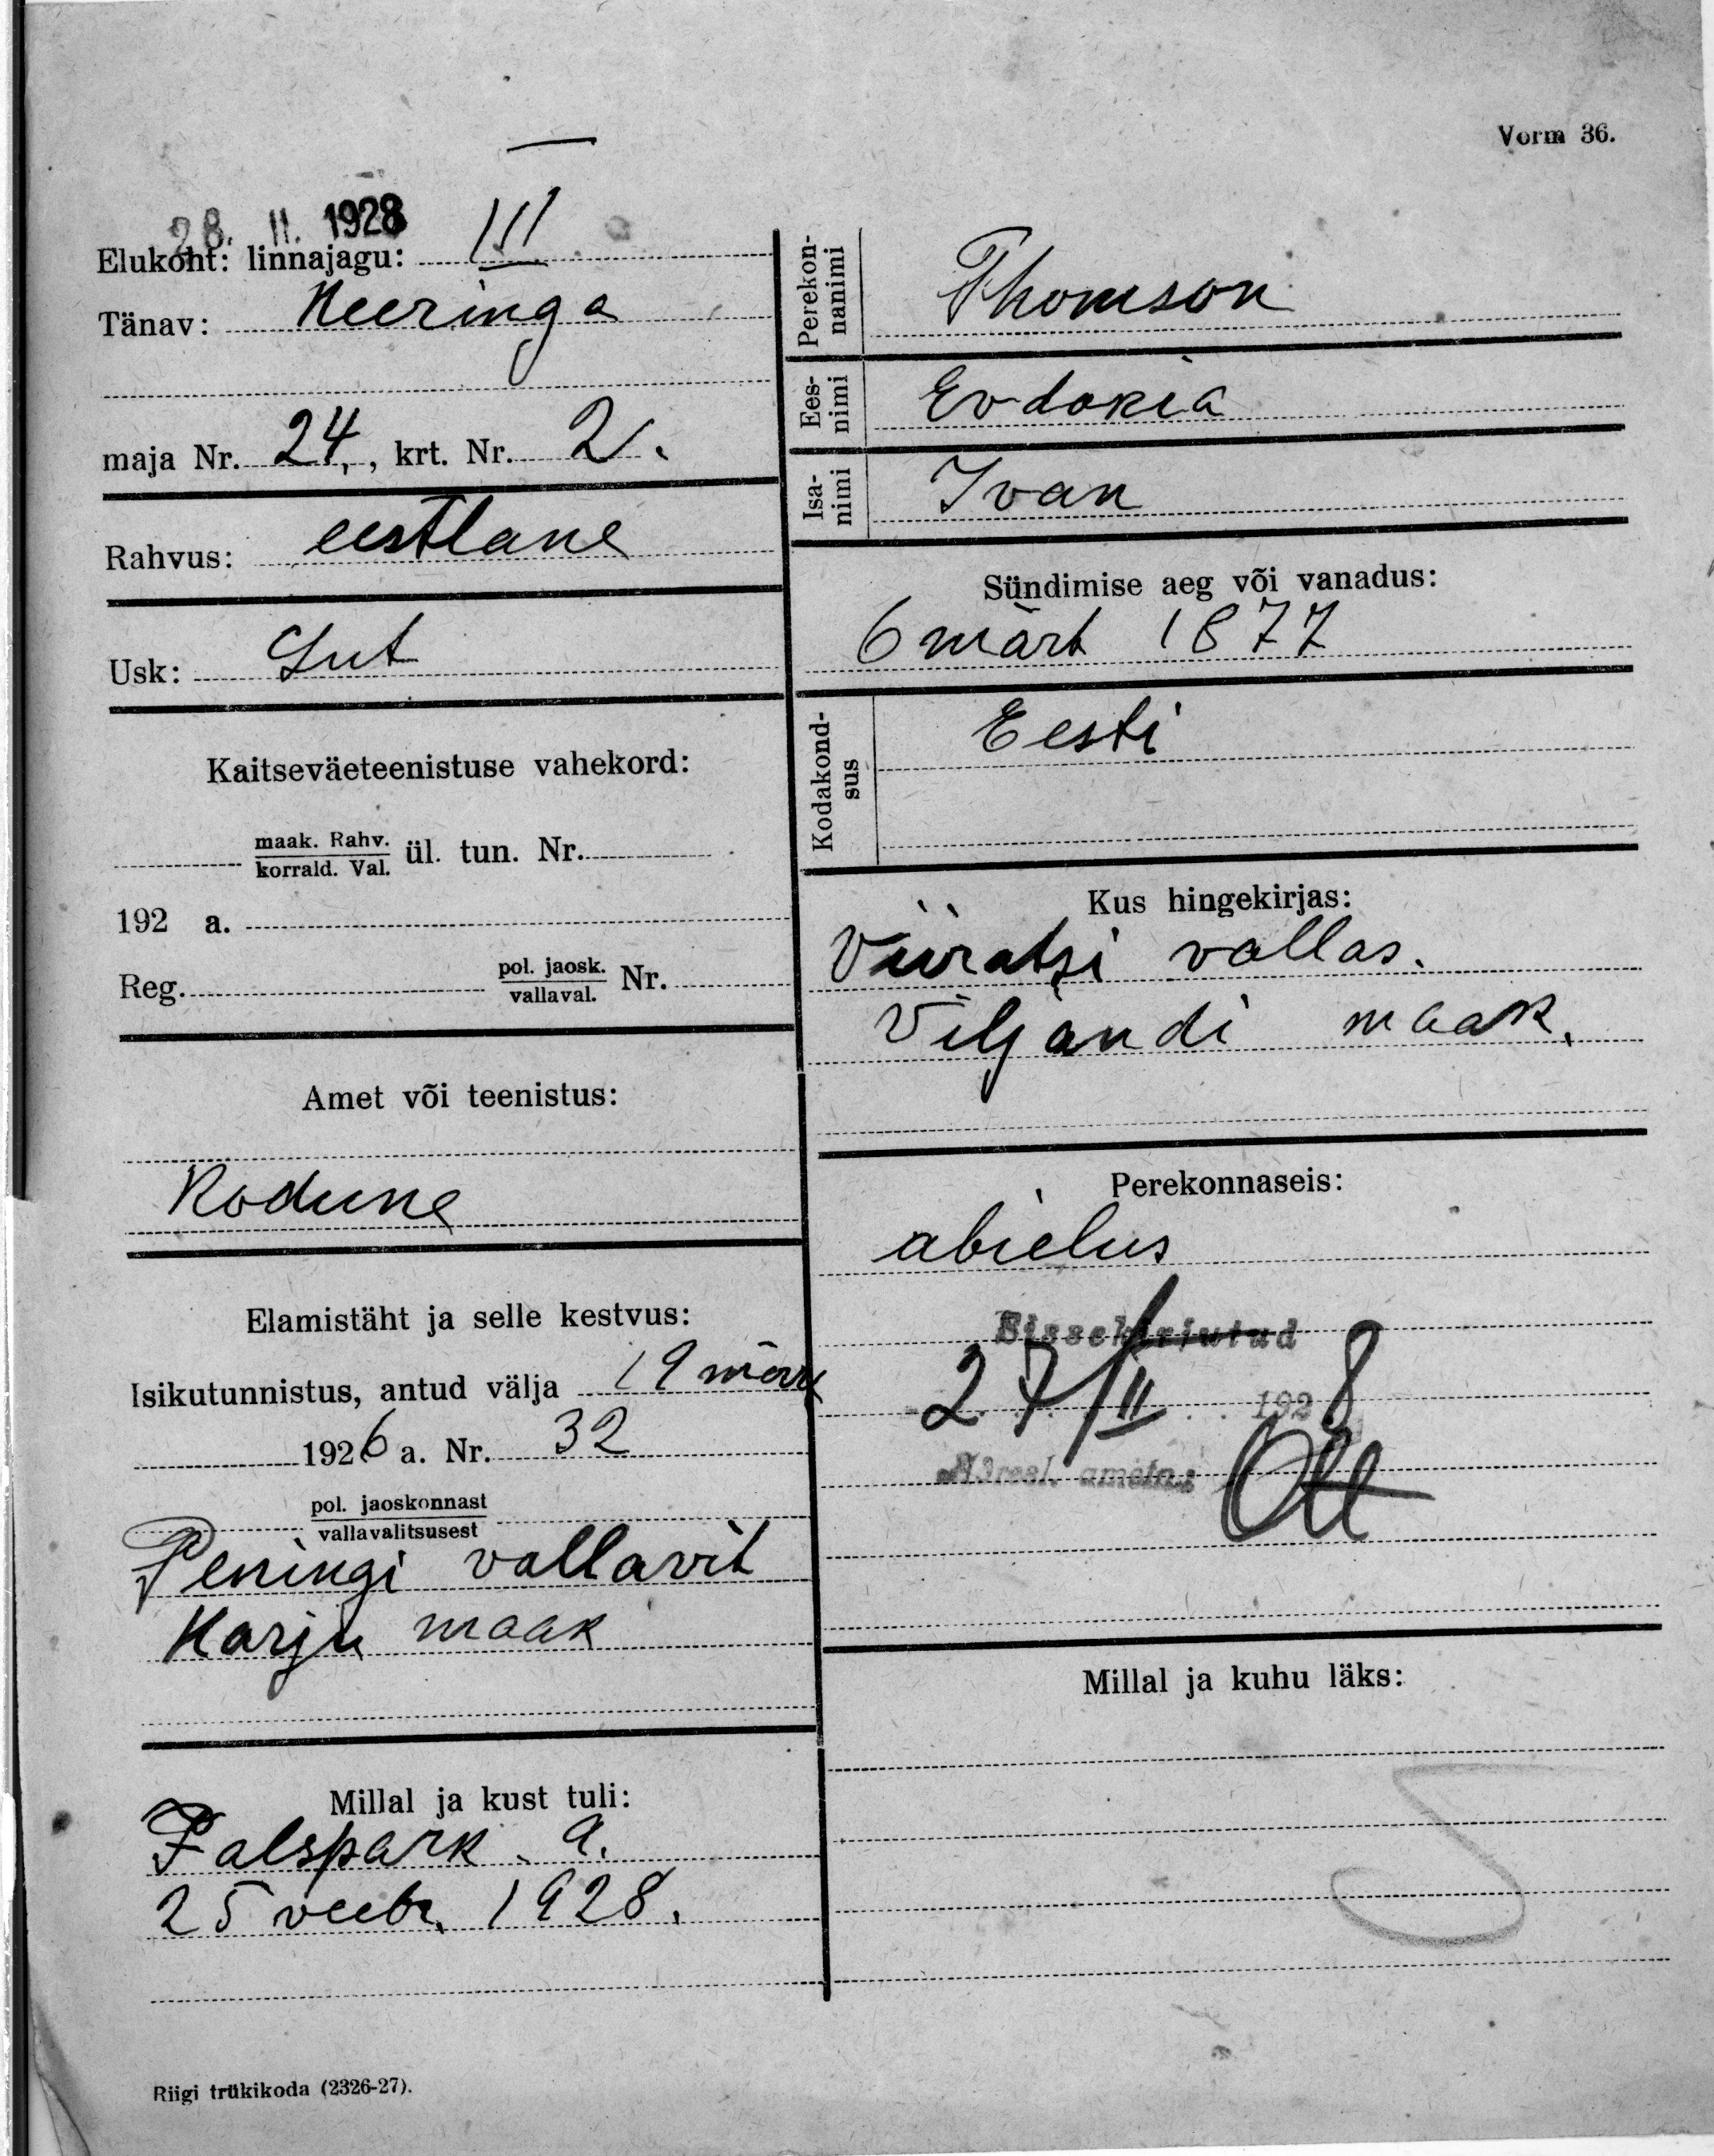 Vorm 36.
28. II. 1928
Elukoht: linnajagu: III
Tänav: Heeringa
maja Nr. 24, , krt. Nr. 2.
Rahvus: eestlane
Usk: Lut
Kaitseväeteenistuse vahekord:
maak. Rahv.
korrald. Val.
ül. tun. Nr.
192 a.
Reg. pol. jaosk.
vallaval.
Nr.
Amet või teenistus:
Kodune
Elamistäht ja selle kestvus:
Isikutunnistus, antud välja 19 märt
1926 a. Nr. 32
pol. jaoskonnast
vallavalitsusest
Peningi vallavit
Harju maak
Millal ja kust tuli:
Falspark a.
25 veebr. 1928.
Riigi trükikoda (2326-27).
Perekon-
nanimi
Thomson
Ees-
nimi
Evdokia
Isa-
nimi
Ivan
Sündimise aeg või vanadus:
6 märt 1877
Kodakond-
sus
Eesti
Kus hingekirjas:
Viiratsi vallas.
Viljandi maak.
Perekonnaseis:
abielus
Sissekirjutud
27/II 1928
Adresl. ametn.: Ott
Millal ja kuhu läks: